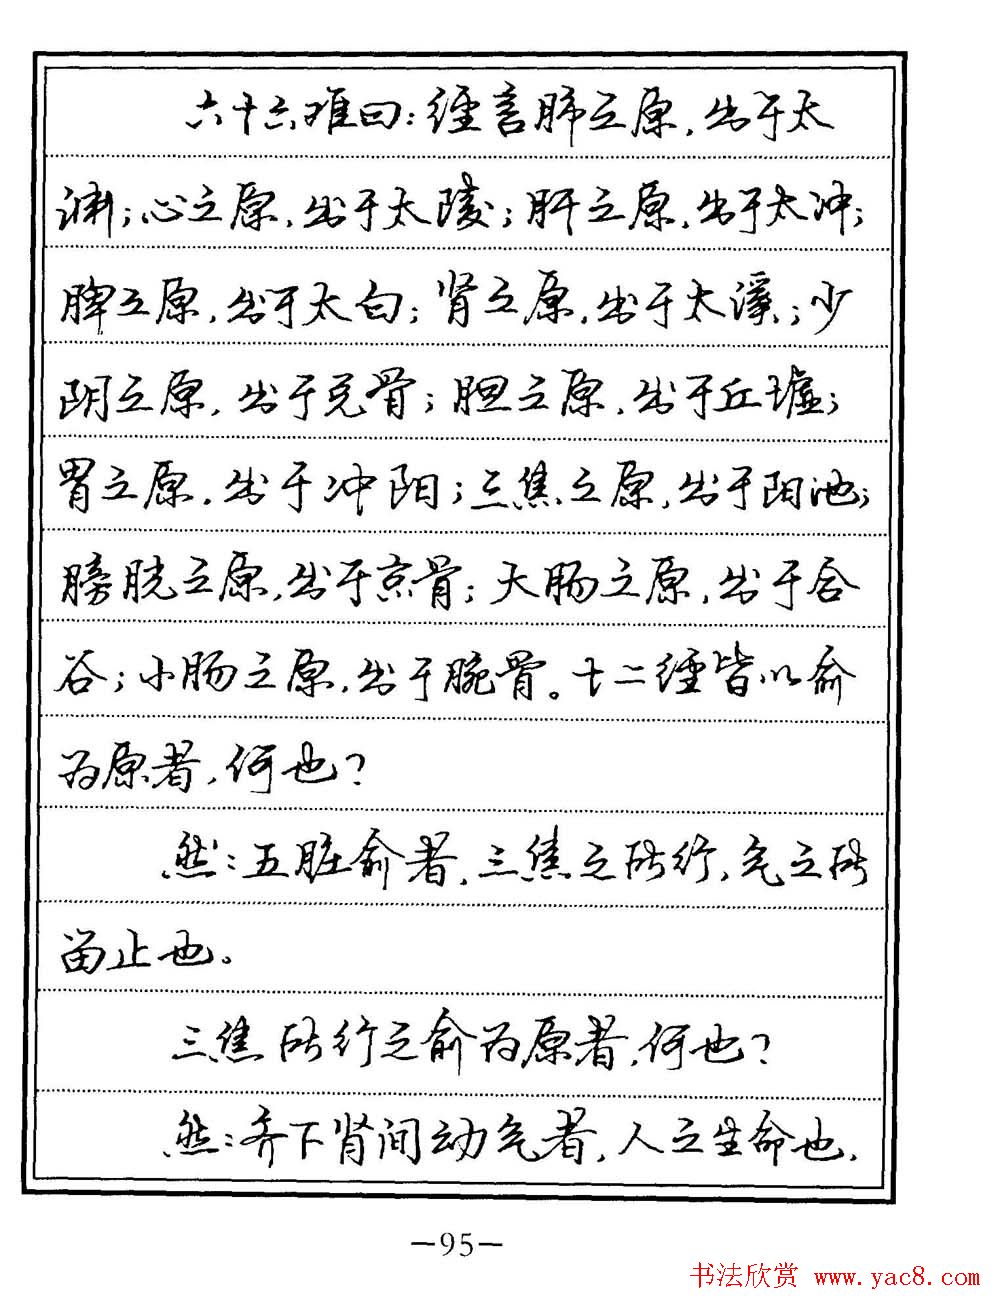 六十六难曰：经言肺之原，出于太
渊；心之原，出于太陵；肝之原，出于太冲；
脾之原，出于太白；肾之原，出于太溪；少
阴之原，出于兑骨；胆之原，出于丘墟；
胃之原，出于冲阳；三焦之原，出于阳池；
膀胱之原，出于京骨；大肠之原，出于合
谷；小肠之原，出于腕骨。十二经皆以俞
为原者，何也？
然：五脏俞者，三焦之所行，气之所
留止也。
三焦所行之俞为原者，何也？
然：齐下肾间动气者，人之生命也，
—95—
书法欣赏 www.yac8.com